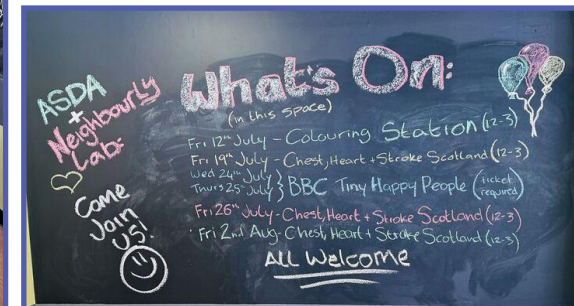 ASDA
+
Neighbourly
Lab
Come
Join
US!
What's On:
(in this space)
Fri 12th July - Colouring Station (12-3)
Fri 19th July - Chest, Heart + Stroke Scotland (12-3)
Wed 24th July
Thurs 25th July } BBC Tiny Happy People (ticket required)
Fri 26th July - Chest, Heart + Stroke Scotland (12-3)
Fri 2nd Aug - Chest, Heart + Stroke Scotland (12-3)
ALL Welcome